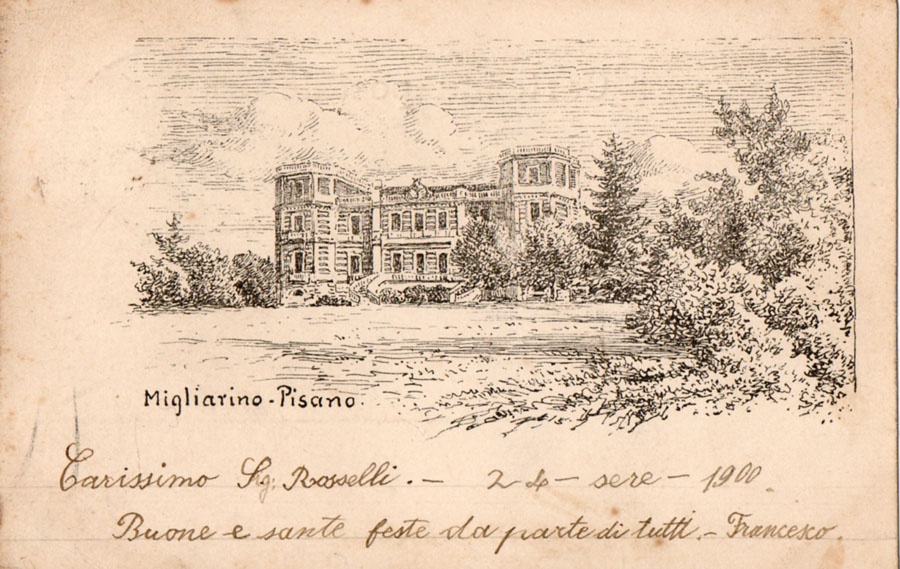 Migliarino - Pisano.
Carissimo Sig: Rosselli. - 24 - sere - 1900
Buone e sante feste da parte di tutti. - Francesco.